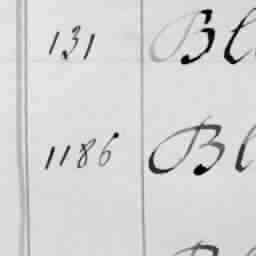 131 Bl
1186 Bl